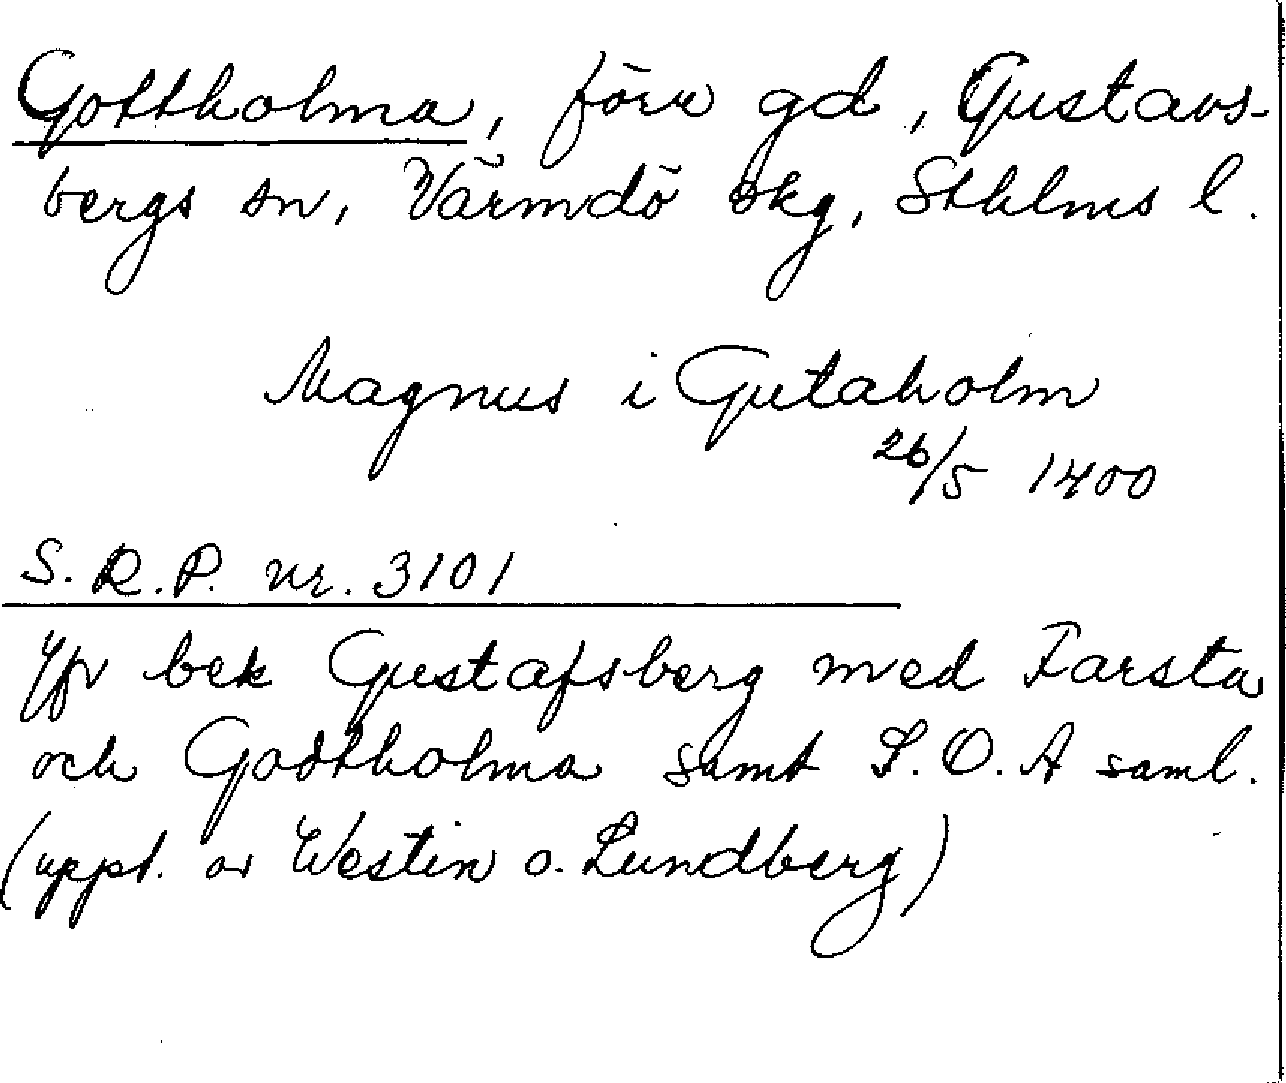 Gottholma, förv gd, Gustavs-
bergs sn, Värmdö skg, Sthlms l.
Magnus i Gutaholm
26/5 1400
S.R.P. nr. 3101
Jfr bek Gustafsberg med Farsta
och Godtholma samt S.O.A saml.
(uppt. av Westin o. Lundberg)